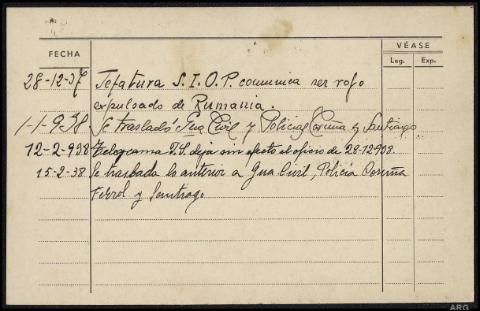 FECHA
VÉASE
Leg. Exp.
28-12-37 Jefatura S.I.O.P. comunica ser rojo
expulsado de Rumania.
1-1-938 Se trasladó Gua Civil y Policia Coruña y Santiago
12-2-938 Telegrama deja sin efecto el oficio de 28-12938.
15-2-38. Se traslada lo anterior a Gua Civil, Policía Coruña
Ferrol y Santiago
ARG